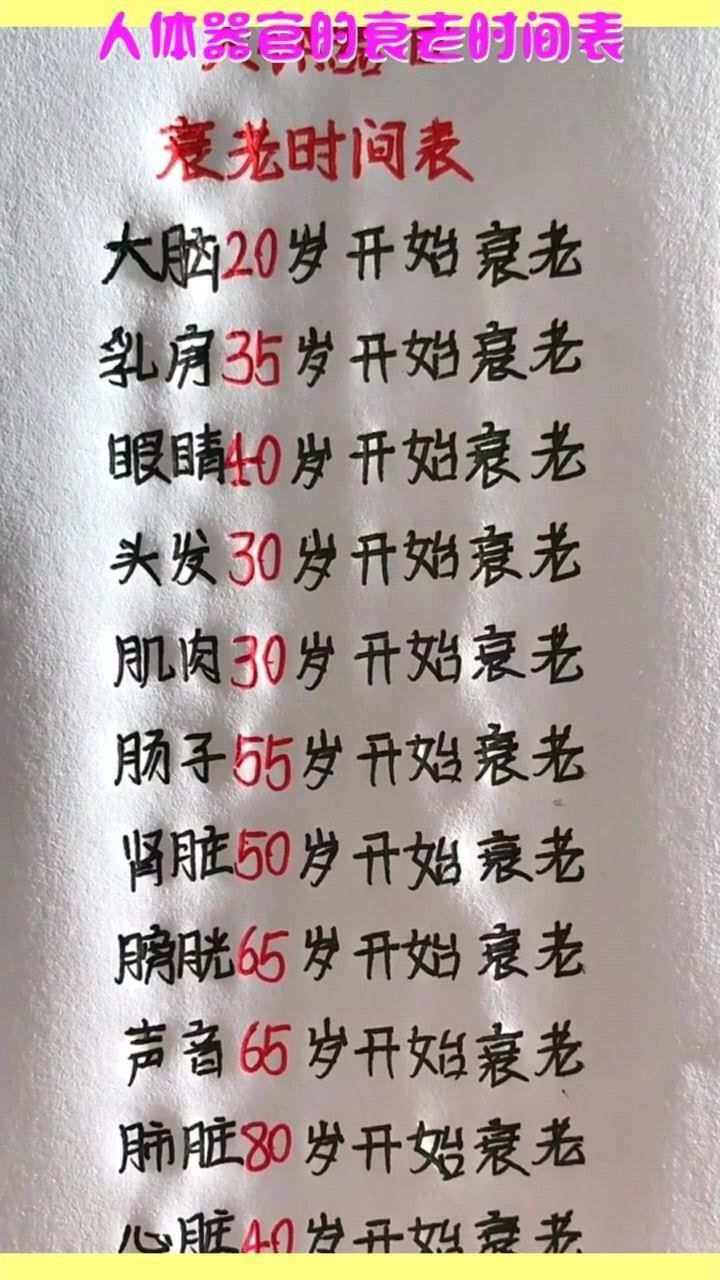 人体器官的衰老时间表
衰老时间表
大脑20岁开始衰老
乳房35岁开始衰老
眼睛40岁开始衰老
头发30岁开始衰老
肌肉30岁开始衰老
肠子55岁开始衰老
肾脏50岁开始衰老
膀胱65岁开始衰老
声音65岁开始衰老
肺脏80岁开始衰老
心脏40岁开始衰老